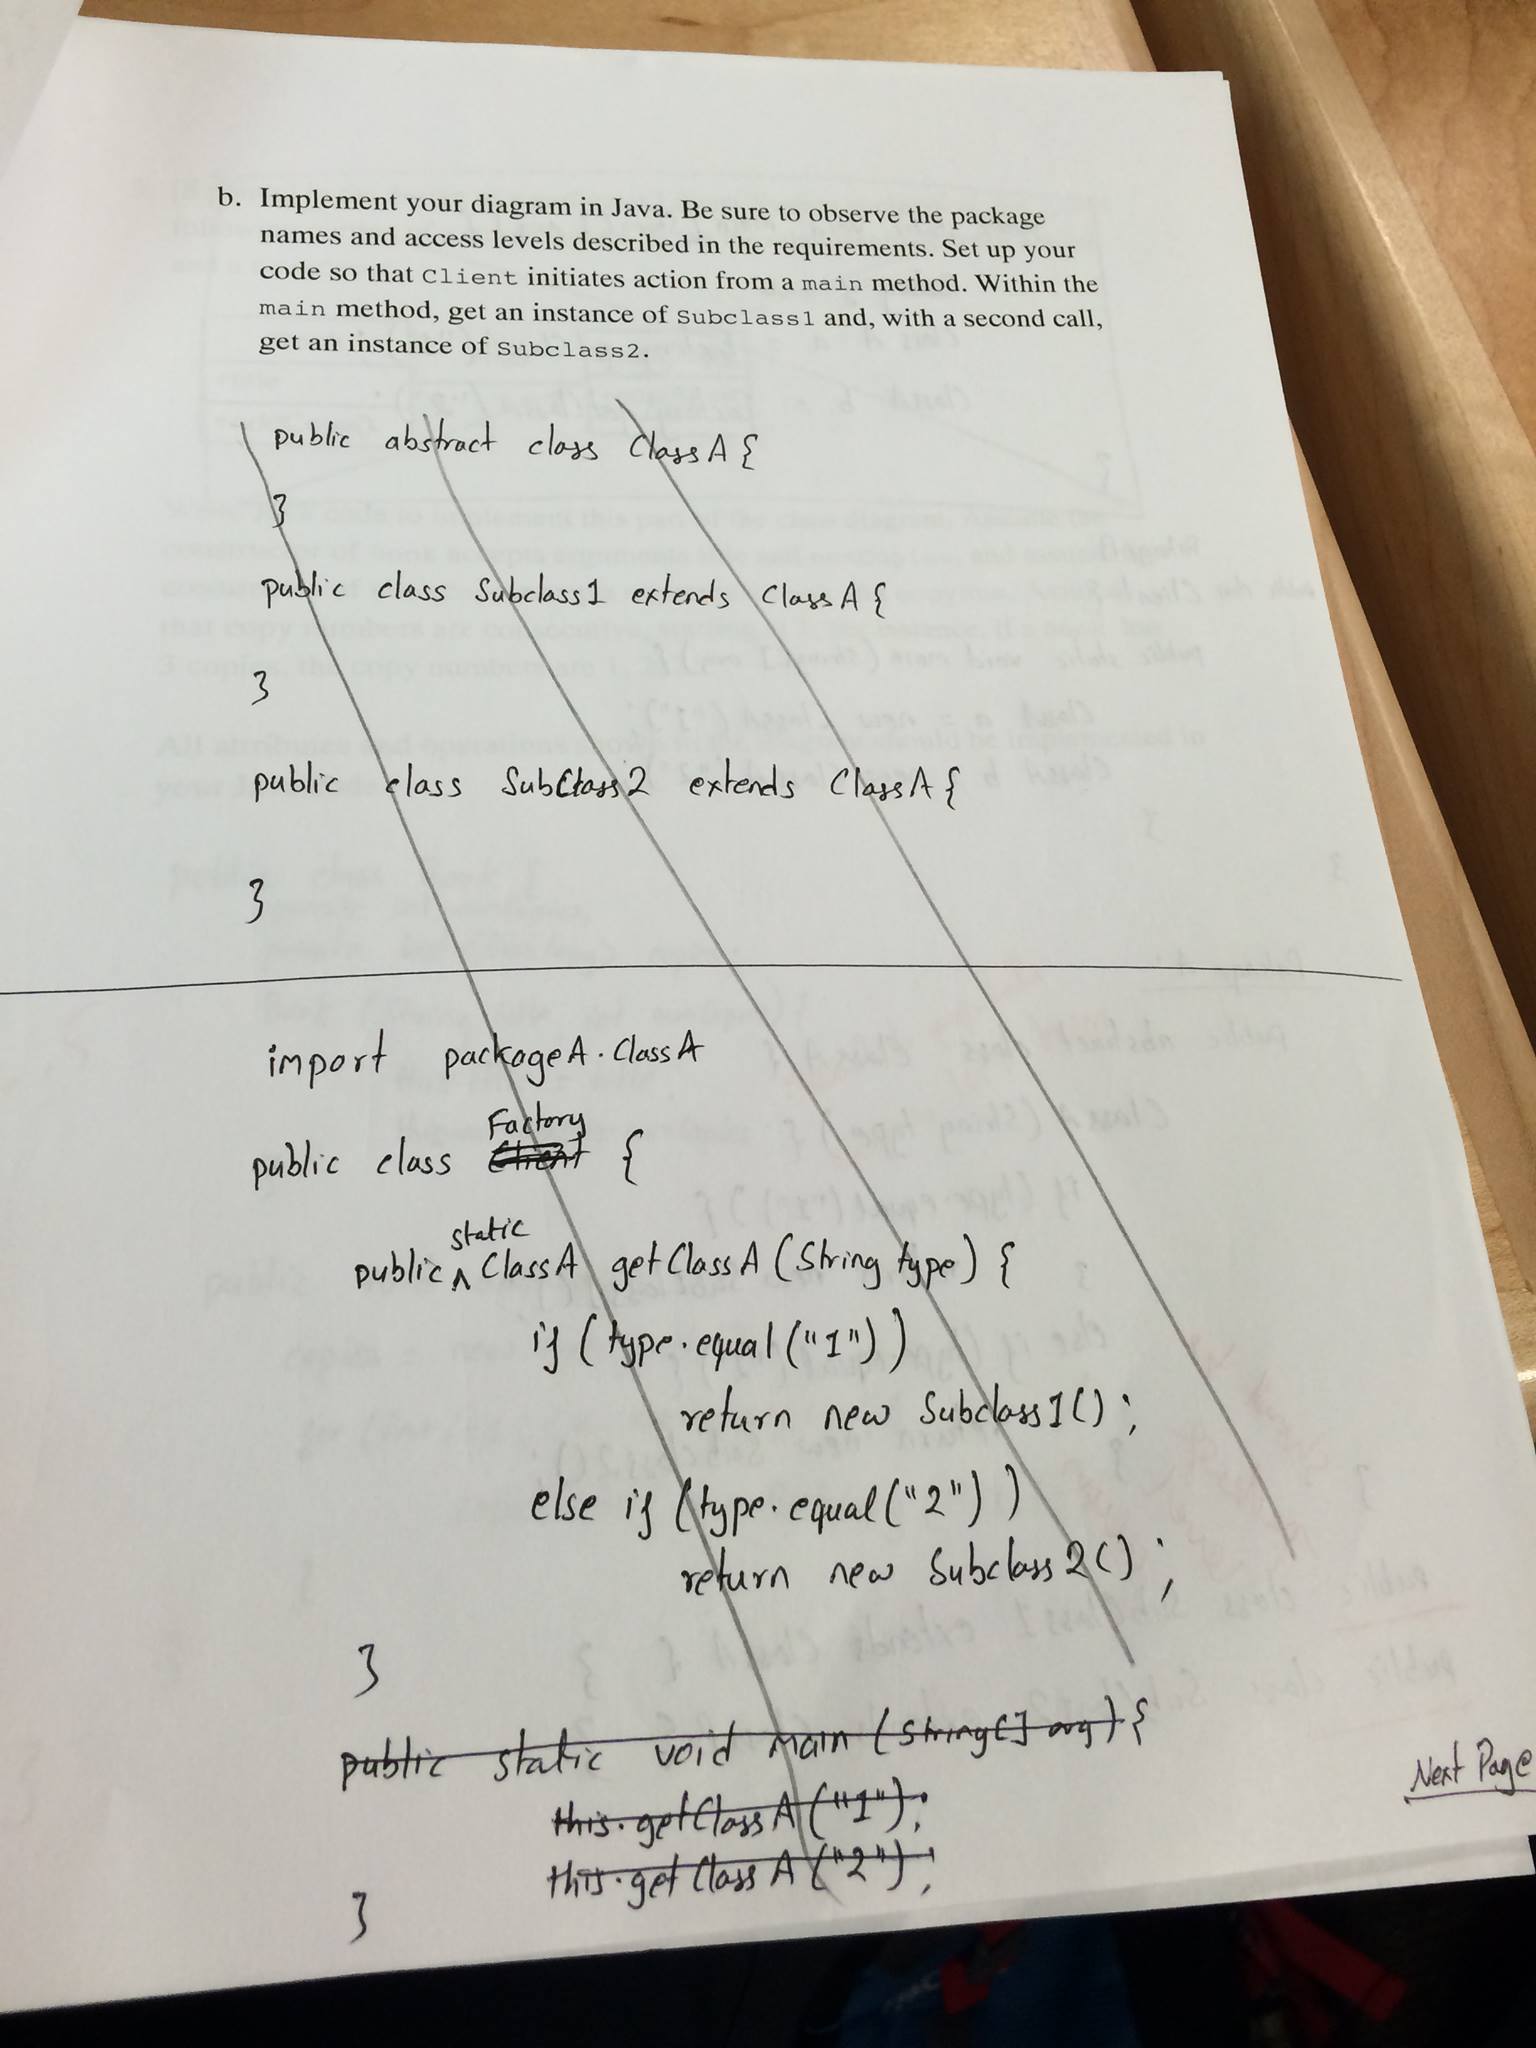 b. Implement your diagram in Java. Be sure to observe the package
names and access levels described in the requirements. Set up your
code so that Client initiates action from a main method. Within the
main method, get an instance of Subclass1 and, with a second call,
get an instance of Subclass2.
public abstract class ClassA {
}
public class Subclass1 extends ClassA {
}
public class SubClass2 extends ClassA {
}
import packageA.ClassA
Factory
public class Client {
static
public ^ ClassA getClassA (String type) {
if (type.equal("1"))
return new Subclass1();
else if (type.equal("2"))
return new Subclass2();
}
public static void main (String[] arg) {
this.getClassA("1");
this.getClassA("2");
}
Next Page